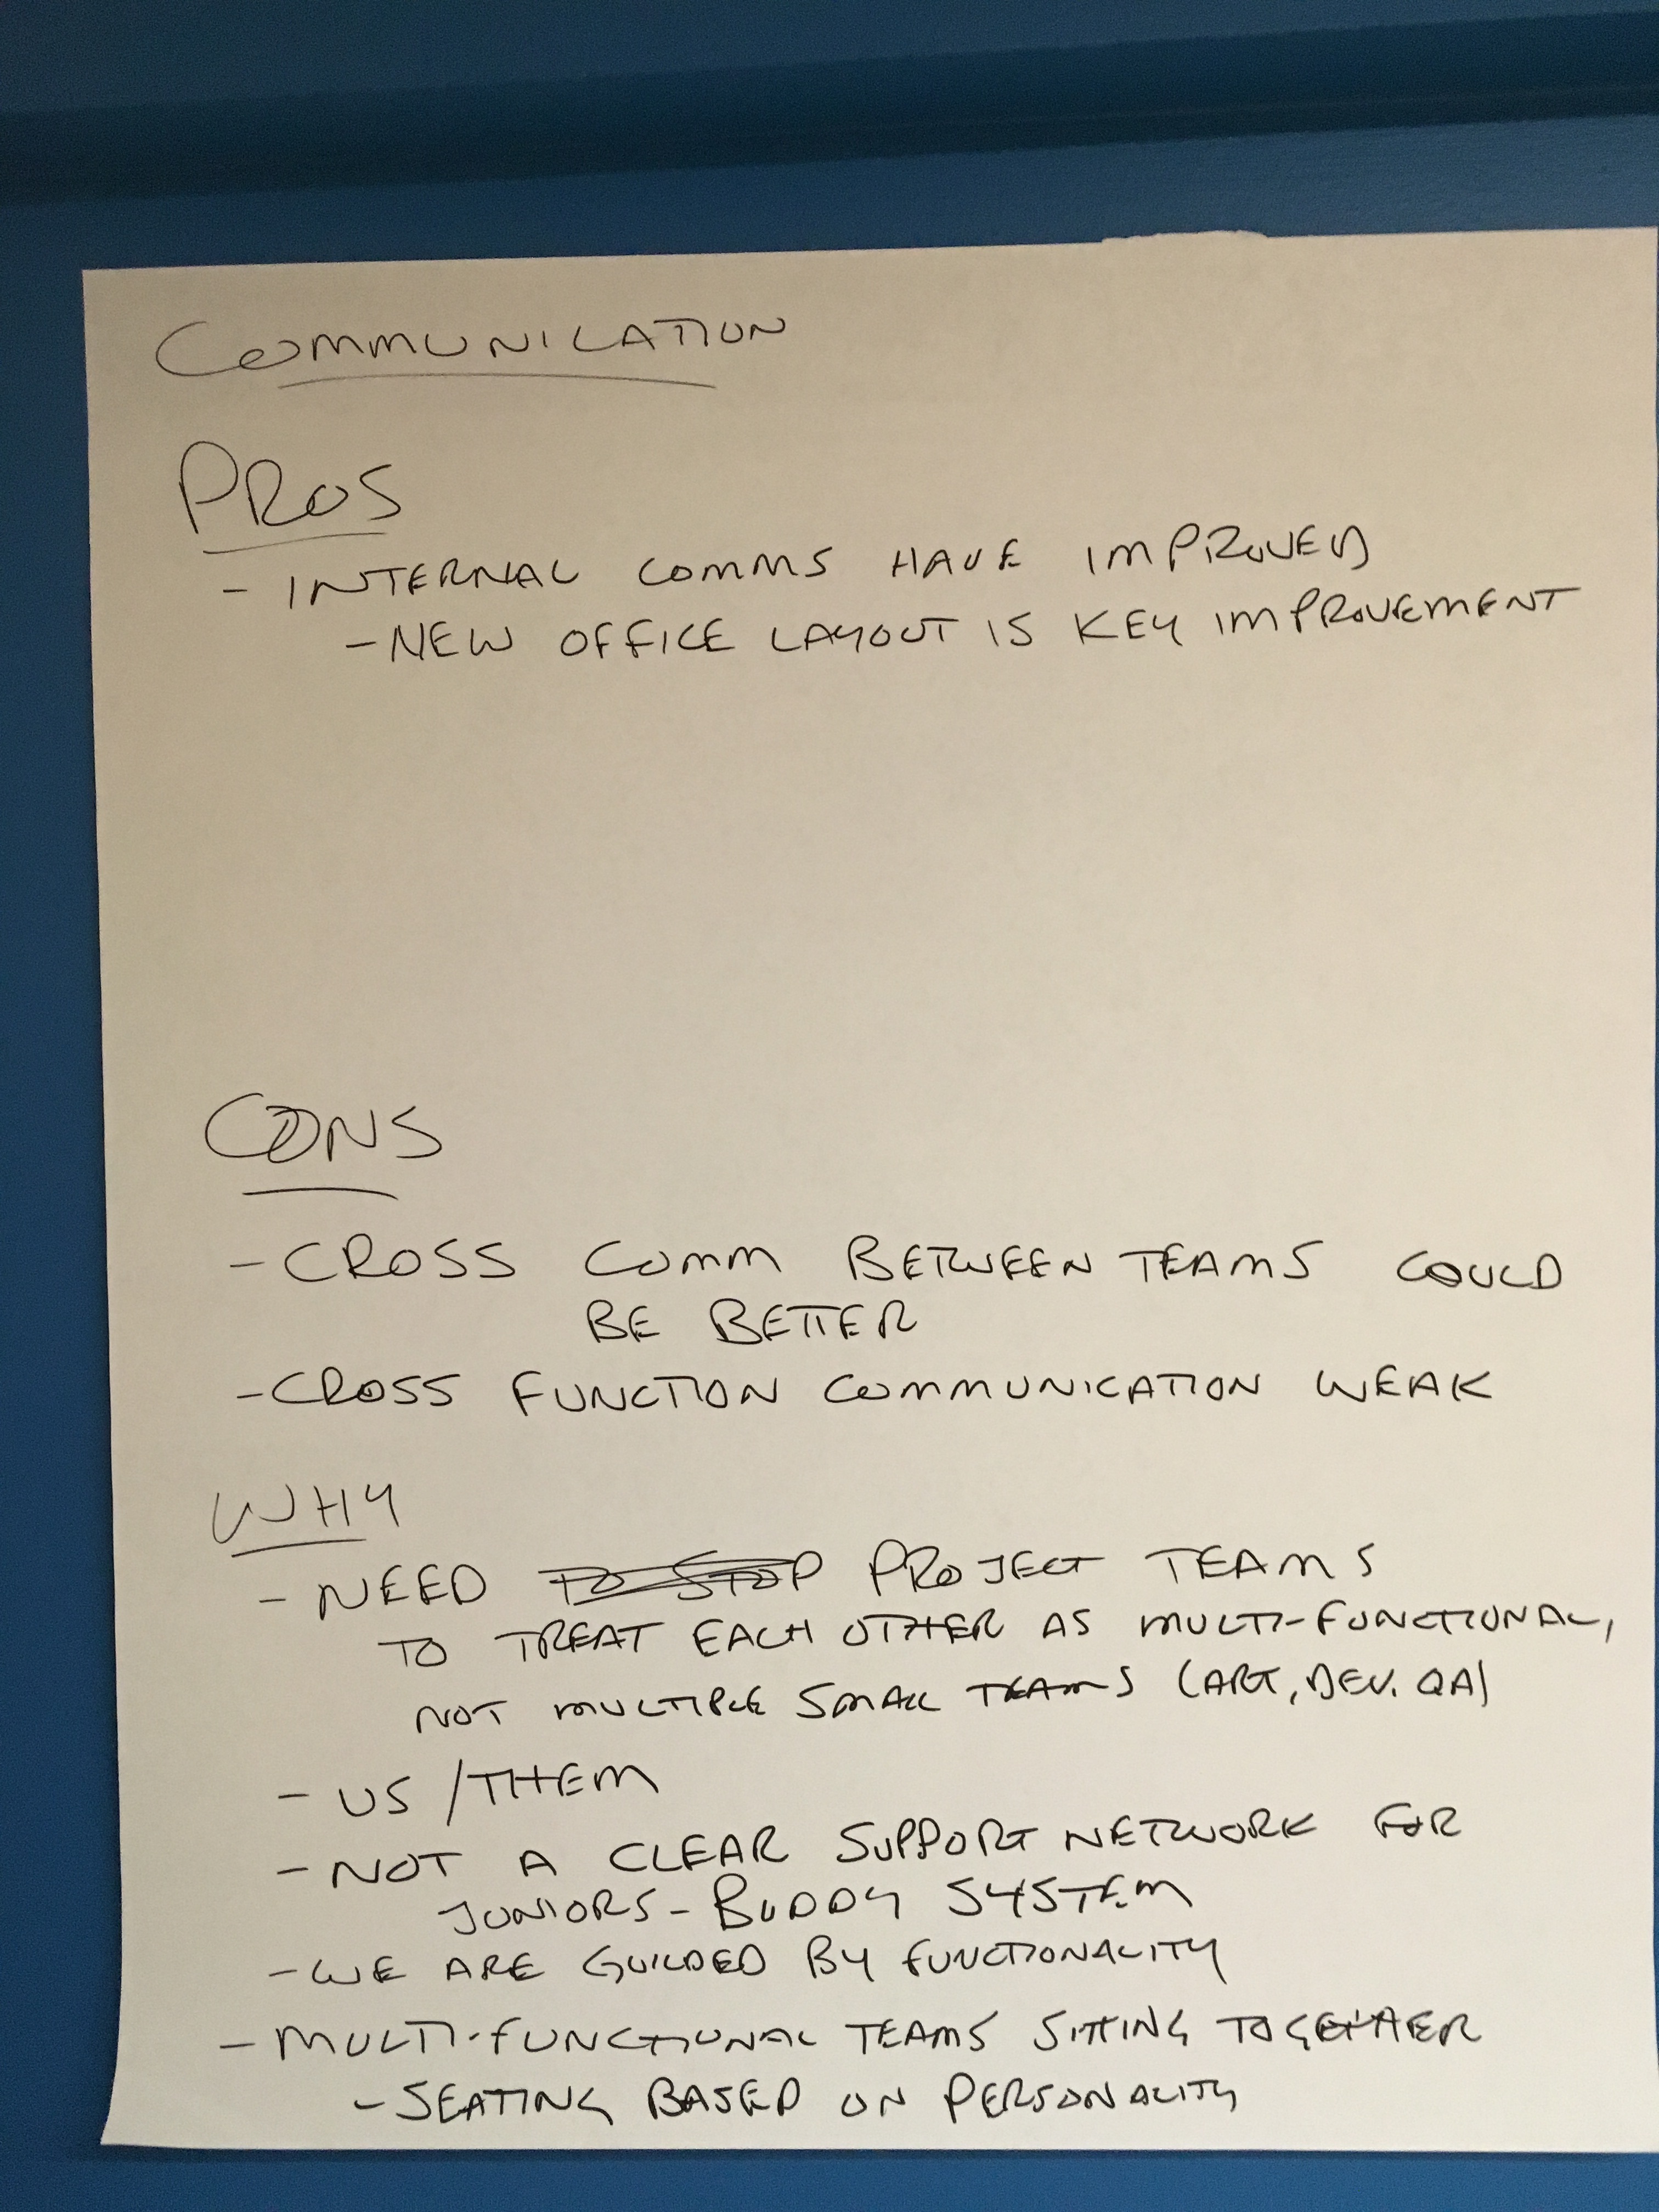 COMMUNICATION
PROS
- INTERNAL COMMS HAVE IMPROVED
- NEW OFFICE LAYOUT IS KEY IMPROVEMENT
CONS
- CROSS COMM BETWEEN TEAMS COULD
BE BETTER
- CROSS FUNCTION COMMUNICATION WEAK
WHY
- NEED TO STOP PROJECT TEAMS
TO TREAT EACH OTHER AS MULTI-FUNCTIONAL,
NOT MULTIPLE SMALL TEAMS (ART, DEV. QA)
- US / THEM
- NOT A CLEAR SUPPORT NETWORK FOR
JUNIORS - BUDDY SYSTEM
- WE ARE GUILDED BY FUNCTIONALITY
- MULTI-FUNCTIONAL TEAMS SITTING TOGETHER
- SEATING BASED ON PERSONALITY